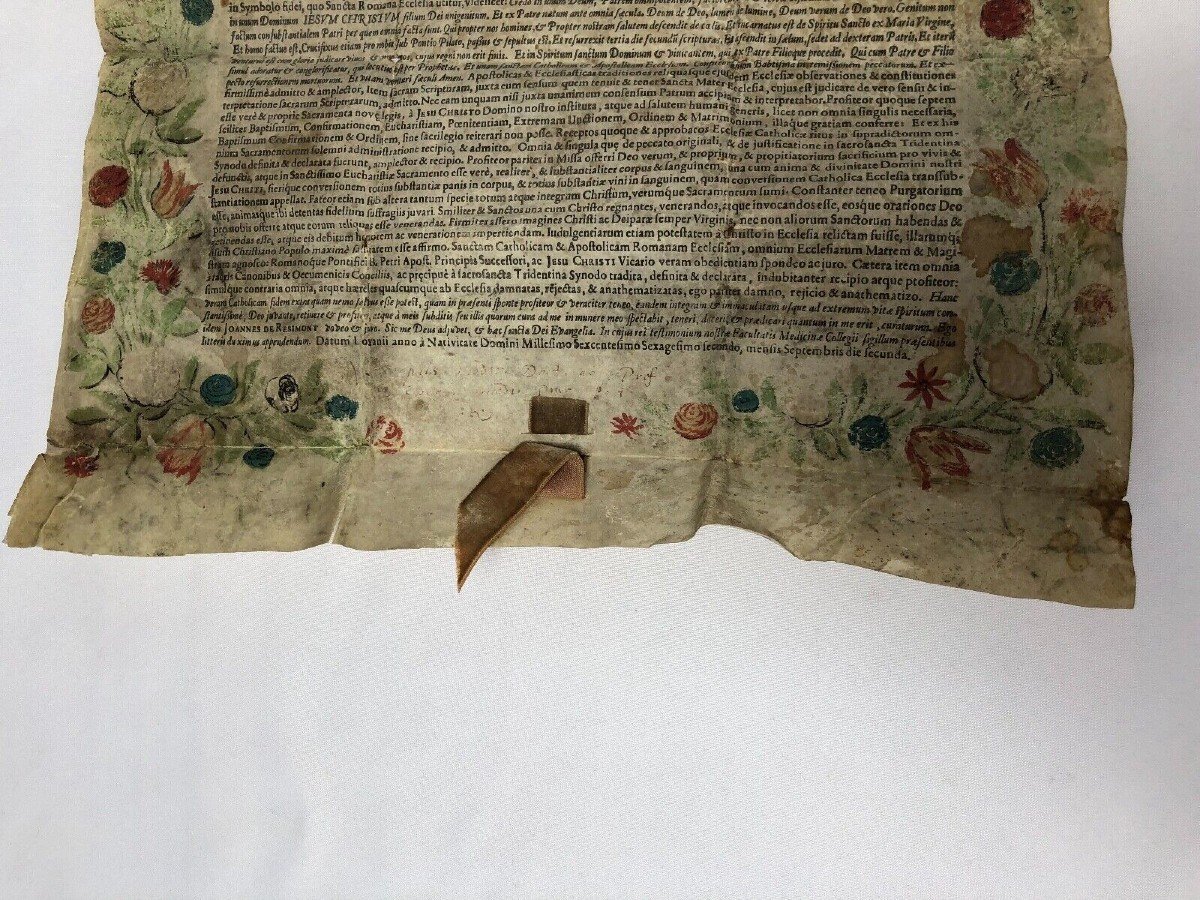 in Symbolo fidei, quo Sancta Romana Ecclesia utitur, videlicet: Credo in unum Deum, Patrem omnipotentem,
in unum Dominum IESUM CHRISTUM filium Dei unigenitum. Et ex Patre natum ante omnia sæcula. Deum de Deo, lumen de lumine, Deum verum de Deo vero. Genitum non
factum consubstantialem Patri per quem omnia facta sunt. Qui propter nos homines, & Propter nostram salutem descendit de cœlis. Et incarnatus est de Spiritu Sancto ex Maria Virgine,
Et homo factus est, Crucifixus etiam pro nobis sub Pontio Pilato, passus & sepultus est. Et resurrexit tertia die secundũ scripturas, Et ascendit in cælum, sedet ad dexteram Patris, Et iterũ
venturus est cum gloria judicare vivos & mortuos, cujus regni non erit finis. Et in Spiritum sanctum Dominum & vivificantem, qui ex Patre Filioque procedit, Qui cum Patre & Filio
simul adoratur & conglorificatur, qui locutus est per Prophetas. Et unam sanctam Catholicam & Apostolicam Ecclesiam. Confiteor unum Baptisma in remissionem peccatorum. Et ex-
pecto resurrectionem mortuorum. Et vitam venturi sæculi Amen. Apostolicas & Ecclesiasticas traditiones reliquasque ejusdem Ecclesiæ observationes & constitutiones
firmissimè admitto & amplector, Item sacram Scripturam, juxta eum sensum quem tenuit & tenet Sancta Mater Ecclesia, cujus est judicare de vero sensu & in-
terpretatione sacrarum Scripturarum, admitto. Nec eam unquam nisi juxta unanimem consensum Patrum accipiam & interpretabor. Profiteor quoque septem
esse verè & propriè Sacramenta novæ legis, à JESU CHRISTO Domino nostro instituta, atque ad salutem humani generis, licet non omnia singulis necessaria,
scilicet Baptismum, Confirmationem, Eucharistiam, Pœnitentiam, Extremam Unctionem, Ordinem & Matrimonium, illaque gratiam conferre: Et ex his
Baptismum Confirmationem & Ordinem, sine sacrilegio reiterari non posse. Receptos quoque & approbatos Ecclesiæ Catholicæ ritus in supradictorum om-
nium Sacramentorum solemni administratione recipio, & admitto. Omnia & singula quæ de peccato originali, & de justificatione in sacrosancta Tridentina
Synodo definita & declarata fuerunt, amplector & recipio. Profiteor pariter in Missa offerri Deo verum, & proprium, & propitiatorium sacrificium pro vivis &
defunctis, atque in Sanctissimo Eucharistiæ Sacramento esse verè, realiter, & substantialiter corpus & sanguinem, una cum anima & divinitate Domini nostri
JESU CHRISTI, fierique conversionem totius substantiæ panis in corpus, & totius substãtiæ vini in sanguinem, quam conversionem Catholica Ecclesia transsub-
stantiationem appellat. Fateor etiam sub altera tantum specie totum atque integrum Christum, verumque Sacramentum sumi. Constanter teneo Purgatorium
esse, animasque ibi detentas fidelium suffragiis juvari. Similiter & Sanctos una cum Christo regnantes, venerandos, atque invocandos esse, eosque orationes Deo
pro nobis offerre atque eorum reliquias esse venerandas. Firmiter assero imagines Christi ac Deiparæ semper Virginis, nec non aliorum Sanctorum habendas &
retinendas esse, atque eis debitum honorem ac venerationem impertiendam. Indulgentiarum etiam potestatem à Christo in Ecclesia relictam fuisse, illarumq;
usum Christiano Populo maximè salutarem esse affirmo. Sanctam Catholicam & Apostolicam Romanam Ecclesiam, omnium Ecclesiarum Matrem & Magi-
stram agnosco: Romanoque Pontifici B. Petri Apost. Principis Successori, ac JESU CHRISTI Vicario veram obedientiam spondeo ac juro. Cætera item omnia
à sacris Canonibus & Oecumenicis Conciliis, ac præcipuè à sacrosancta Tridentina Synodo tradita, definita & declarata, indubitanter recipio atque profiteor:
simulque contraria omnia, atque hæreses quascumque ab Ecclesia damnatas, rejectas, & anathematizatas, ego pariter damno, rejicio & anathematizo. Hanc
veram Catholicam fidem extra quam nemo salvus esse potest, quam in præsenti sponte profiteor & veraciter teneo, eandem integram & immaculatam usque ad extremum vitæ spiritum con-
stantissimè, Deo juvante, retinere & profiteri, atque à meis subditis, seu illis quorum cura ad me in munere meo spectabit, teneri, doceri, & prædicari quantum in me erit, curaturum. Ego
idem JOANNES DE RESIMONT voveo & juro. Sic me Deus adjuvet, & hæc sancta Dei Evangelia. In cujus rei testimonium nostræ Facultatis Medicinæ Collegii sigillum præsentibus
litteris duximus appendendum. Datum Lovanii anno à Nativitate Domini Millesimo Sexcentesimo Sexagesimo secundo, mensis Septembris die secunda.